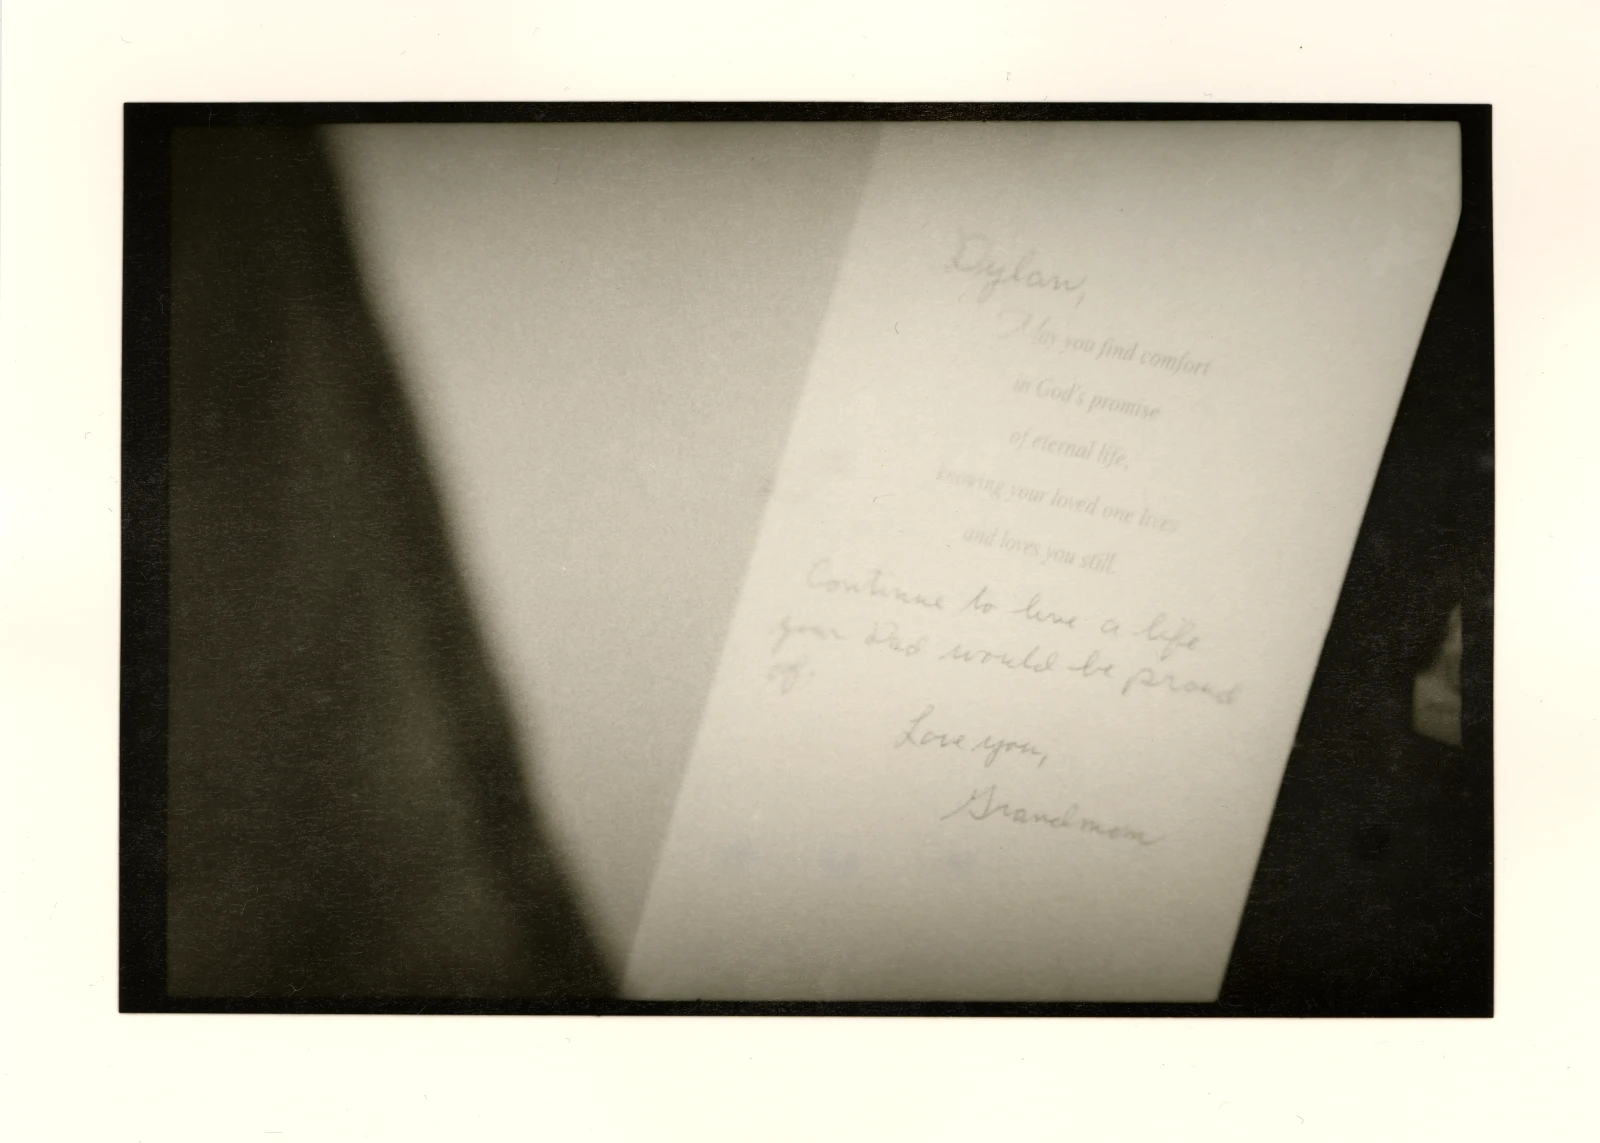 Dylan,
May you find comfort
in God's promise
of eternal life,
knowing your loved one lives
and loves you still.
Continue to live a life
your Dad would be proud
of.
Love you,
Grandmom